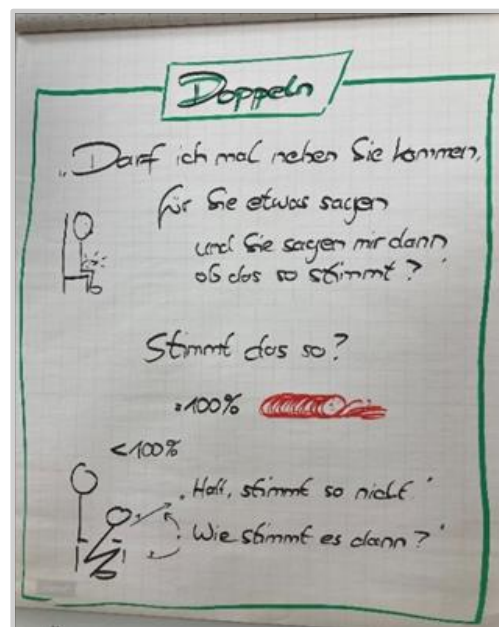 Doppeln
„Darf ich mal neben Sie kommen,
für Sie etwas sagen
und Sie sagen mir dann
ob das so stimmt?"
Stimmt das so?
=100%
<100%
„Halt, stimmt so nicht."
„Wie stimmt es dann?"